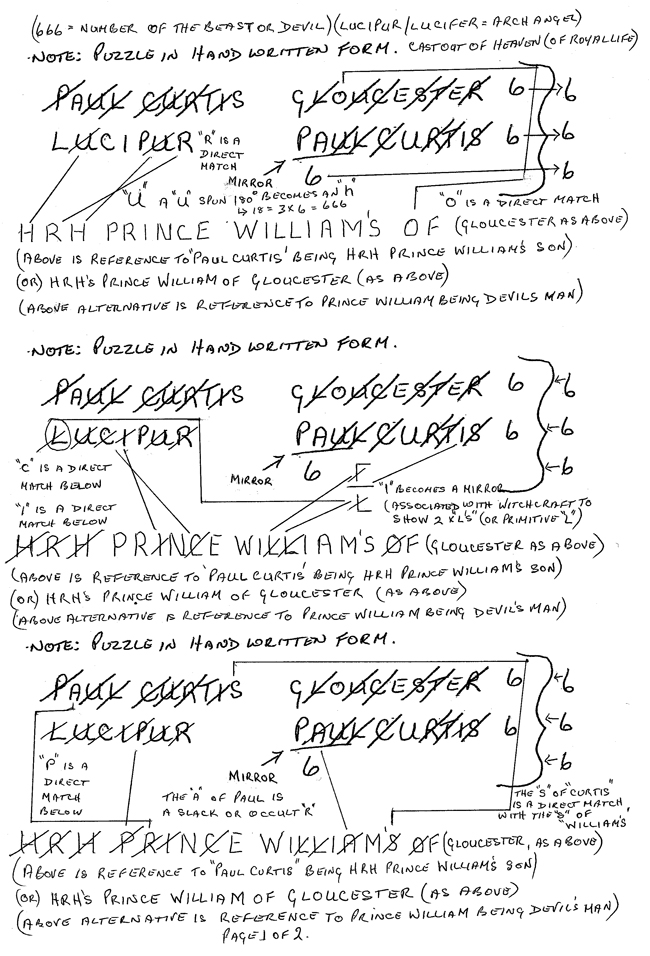 (666 = NUMBER OF THE BEAST OR DEVIL) (LUCIPUR/LUCIFER = ARCH ANGEL)
·NOTE: PUZZLE IN HAND WRITTEN FORM. CAST OUT OF HEAVEN (OF ROYAL LIFE)
PAUL CURTIS GLOUCESTER 6 → 6
LUCIPUR "R" IS A DIRECT MATCH PAUL CURTIS 6 → 6
MIRROR 6 → 6
"U" A "U" SPUN 180° BECOMES AN "h"
↳ 18 = 3 x 6 = 666
"O" IS A DIRECT MATCH
HRH PRINCE WILLIAM'S OF (GLOUCESTER AS ABOVE)
(ABOVE IS REFERENCE TO "PAUL CURTIS" BEING HRH PRINCE WILLIAM'S SON)
(OR) HRH'S PRINCE WILLIAM OF GLOUCESTER (AS ABOVE)
(ABOVE ALTERNATIVE IS REFERENCE TO PRINCE WILLIAM BEING DEVILS MAN)
·NOTE: PUZZLE IN HAND WRITTEN FORM.
PAUL CURTIS GLOUCESTER 6 ← 6
LUCIPUR PAUL CURTIS 6 ← 6
MIRROR 6 ← 6
"C" IS A DIRECT
MATCH BELOW
"I" IS A DIRECT
MATCH BELOW
"I" BECOMES A MIRROR
(ASSOCIATED WITH WITCHCRAFT TO
SHOW 2 x "L'S" (OR PRIMITIVE "L")
HRH PRINCE WILLIAM'S OF (GLOUCESTER AS ABOVE)
(ABOVE IS REFERENCE TO "PAUL CURTIS" BEING HRH PRINCE WILLIAM'S SON)
(OR) HRH'S PRINCE WILLIAM OF GLOUCESTER (AS ABOVE)
(ABOVE ALTERNATIVE IS REFERENCE TO PRINCE WILLIAM BEING DEVIL'S MAN)
·NOTE: PUZZLE IN HAND WRITTEN FORM.
PAUL CURTIS GLOUCESTER 6 ← 6
LUCIPUR PAUL CURTIS 6 ← 6
MIRROR 6 ← 6
"P" IS A
DIRECT
MATCH
BELOW
THE "A" OF PAUL IS
A SLACK OR OCCULT "R"
THE "S" OF "CURTIS"
IS A DIRECT MATCH
WITH THE "S" OF
"WILLIAM'S"
HRH PRINCE WILLIAM'S OF (GLOUCESTER, AS ABOVE)
(ABOVE IS REFERENCE TO "PAUL CURTIS" BEING HRH PRINCE WILLIAM'S SON)
(OR) HRH'S PRINCE WILLIAM OF GLOUCESTER (AS ABOVE)
(ABOVE ALTERNATIVE IS REFERENCE TO PRINCE WILLIAM BEING DEVIL'S MAN)
PAGE 1 OF 2.